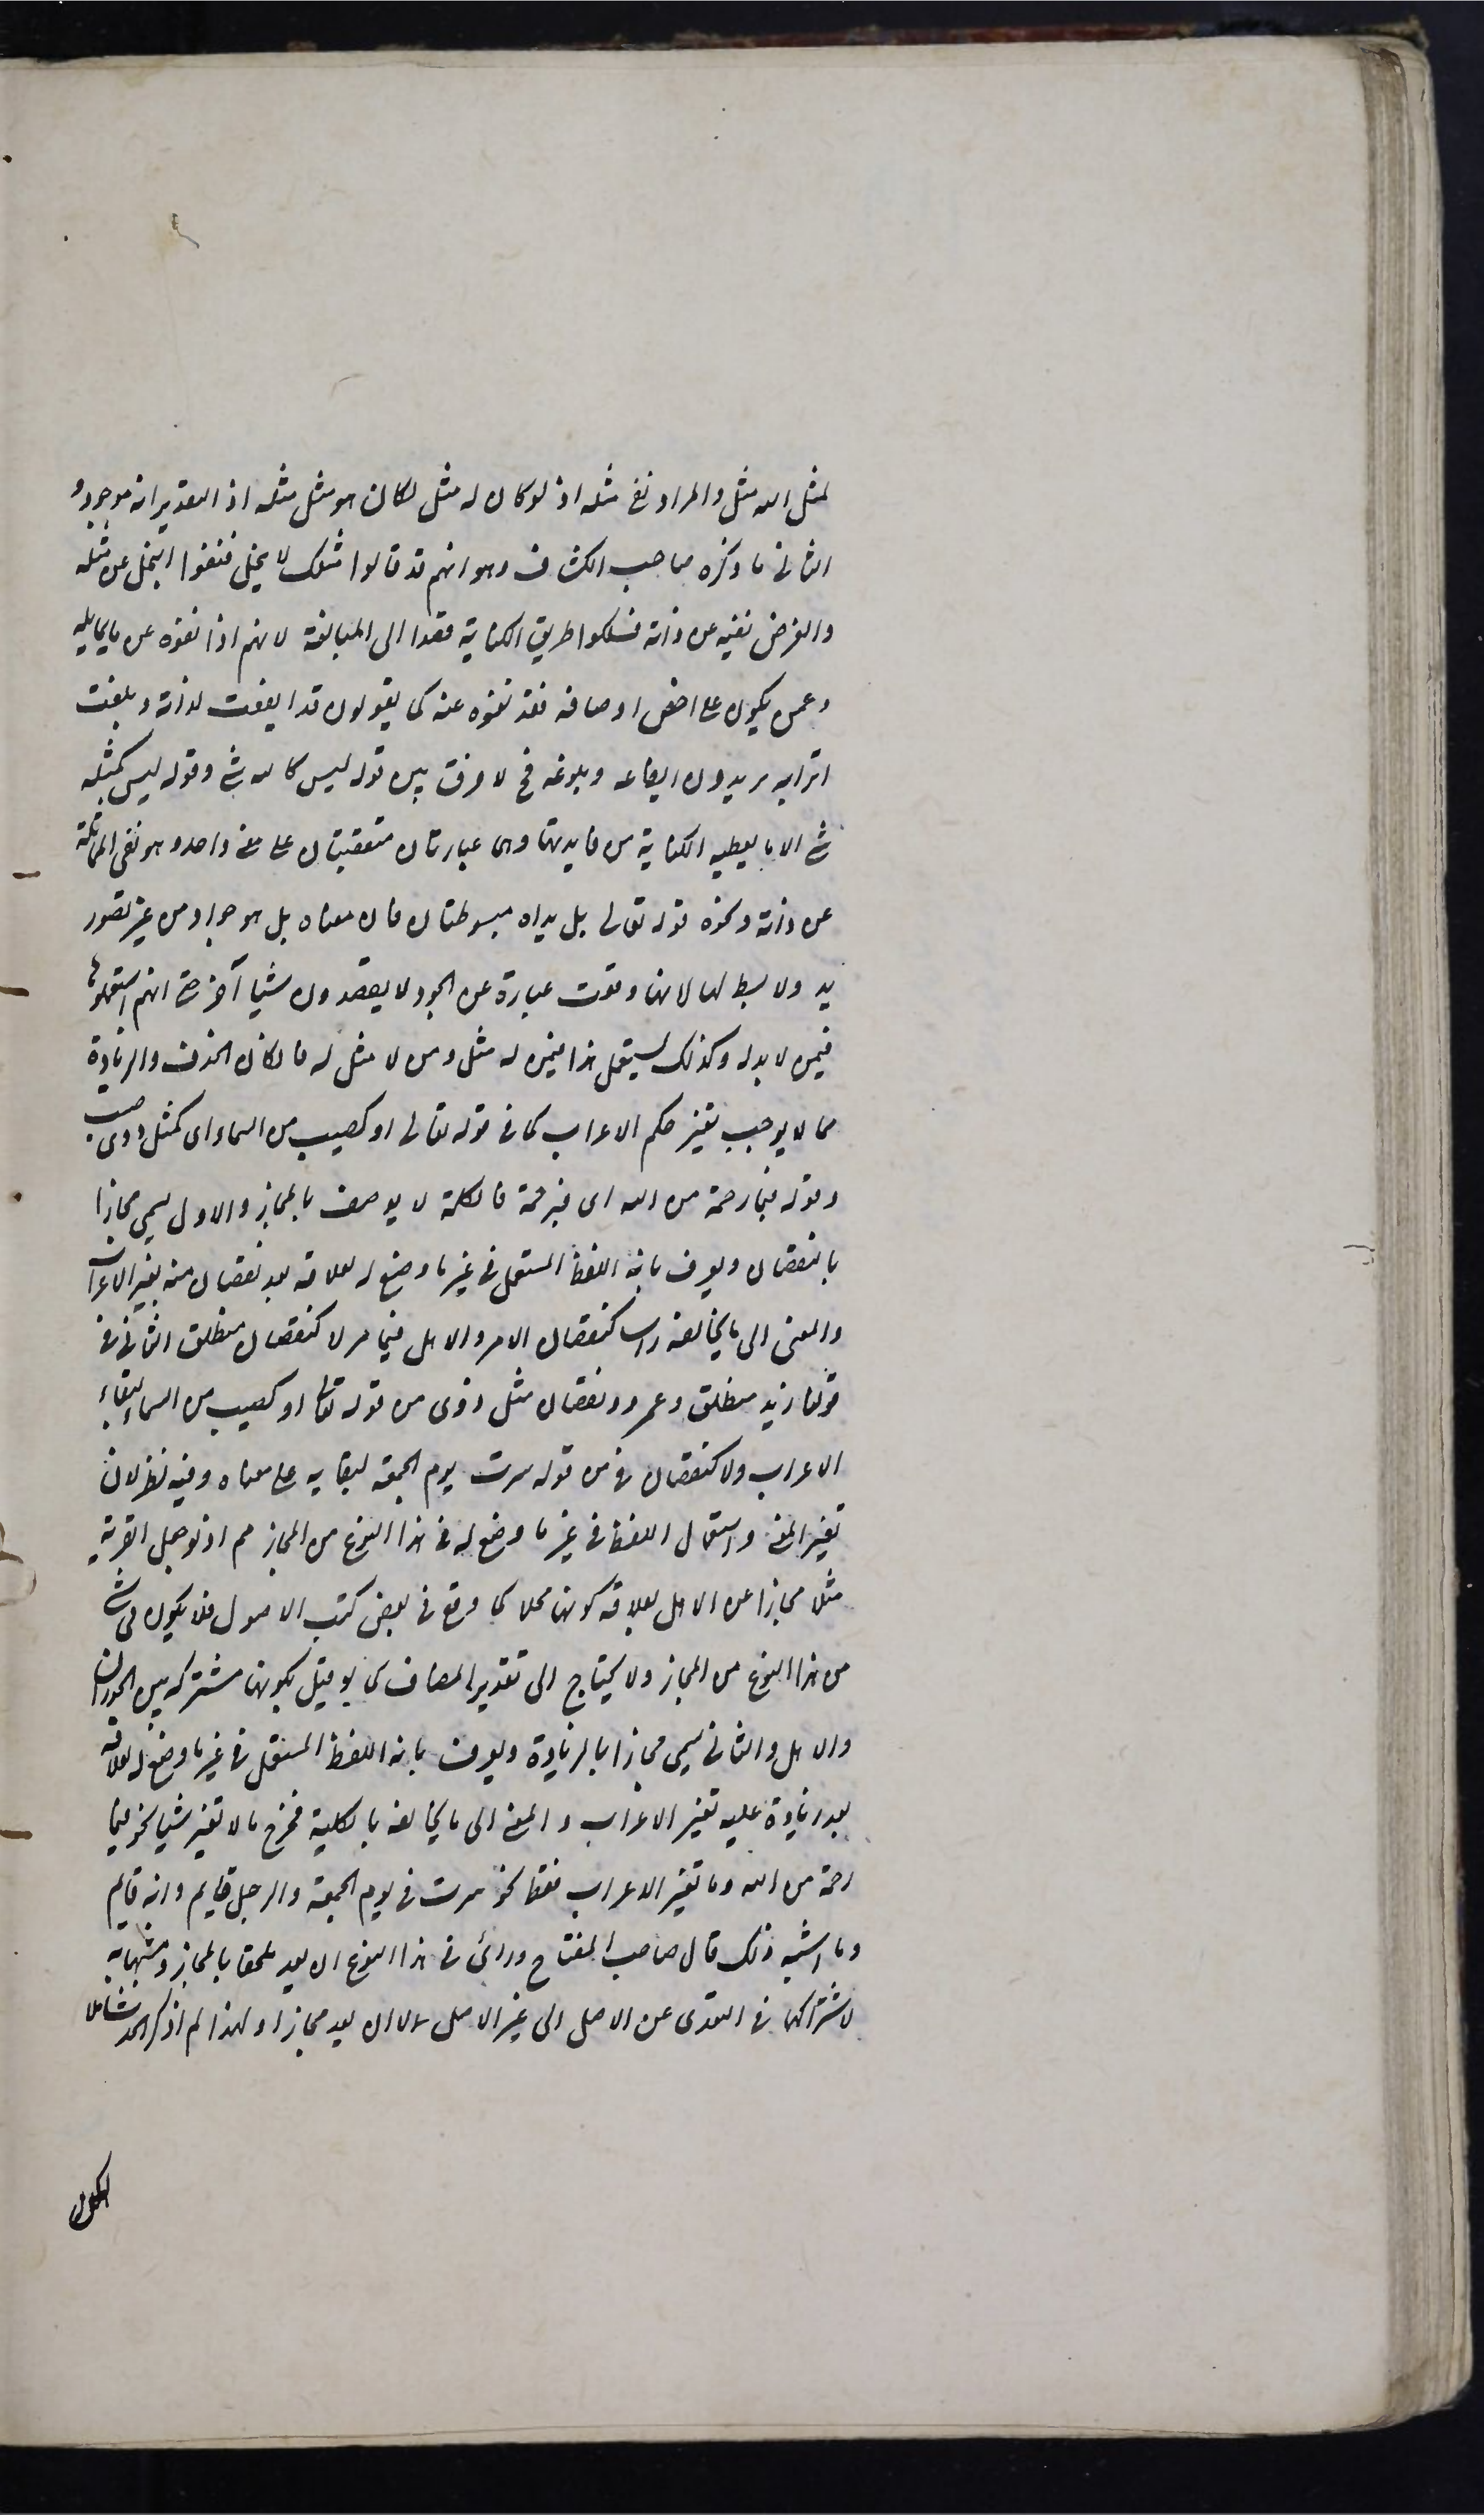 لمثل الله مثل والمراد نفى مثله اذ لو كان له مثل لكان هو مثل مثله اذ التقدير انه موجود و
الثانى ما ذكره صاحب الكشاف وهو انهم قد قالوا مثلك لا يبخل فنفوا البخل عن مثله
والغرض نفيه عن ذاته فسلكوا طريق الكناية قصدا الى المبالغة لانهم اذا نفوه عن ما يماثله
وعمن يكون على اخص اوصافه فقد نفوه عنه كما يقولون قد ايفعت لداته وبلغت
اترابه يريدون ايفاعه وبلوغه فح لا فرق بين قوله ليس كالله شئ وقوله ليس كمثله
شئ الا ما يعطيه الكناية من فايدتها وهما عبارتان متعقبتان على معنى واحد وهو نفى المماثلة
عن ذاته ونحوه قوله تعالى بل يداه مبسوطتان فان معناه بل هو جواد من غير تصور
يد ولا بسط لها لانها وقعت عبارة عن الجود لا يقصدون شيا آخر حتى انهم استعملوها
فيمن لا يد له وكذلك يستعمل هذا فيمن له مثل ومن لا مثل له فان كان الحذف والزيادة
مما لا يوجب تغير حكم الاعراب كما فى قوله تعالى او كصيب من السماء اى كمثل ذوى صيب
وقوله فبما رحمة من الله اى فبرحمة فالكلمة لا يوصف بالمجاز والاول يسمى مجازا
بالنقصان ويعرف بانه اللفظ المستعمل فى غير ما وضع له لعلاقة بعد نقصان منه يغير الاعراب
والمعنى الى ما يخالفه راسا كنقصان الامر والاهل فيما مر لا كنقصان منطلق الثانى فى
قولنا زيد منطلق وعمرو ونقصان مثل ذوى من قوله تعالى او كصيب من السماء لبقاء
الاعراب ولا كنقصان فى من قوله سرت يوم الجمعة لبقايه على معناه وفيه نظر لان
تغير المعنى واستعمال اللفظ فى غير ما وضع له فى هذا النوع من المجاز مم اذ لو جعل القرية
مثلا مجازا عن الاهل لعلاقة كونها محلا كما وقع فى بعض كتب الاصول فلا يكون فى شئ
من هذا النوع من المجاز ولا يحتاج الى تقدير المضاف كما لو قيل بكونها مشتركه بين الجدران
والاهل والثانى يسمى مجازا بالزيادة ويعرف بانه اللفظ المستعمل فى غير ما وضع له لعلاقة
بعد زيادة عليه تغير الاعراب والمعنى الى ما يخالفه بالكلية فخرج ما لا تغير شيا نحو فبما
رحمة من الله وما تغير الاعراب فقط نحو سرت فى يوم الجمعة والرجل قايم وانه قايم
وما اشبه ذلك قال صاحب المفتاح ورائى فى هذا النوع ان يعد ملحقا بالمجاز ومشبها به
لاشتراكهما فى التعدى عن الاصل الى غير الاصل لا ان يعد مجازا ولهذا لم اذكر الحد شاملا